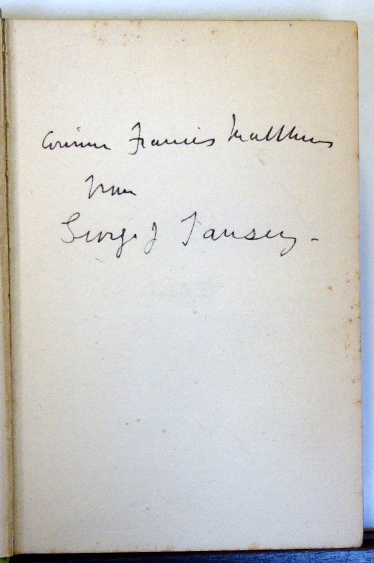 Corinne Francis Matthews
from
George J Tansey.